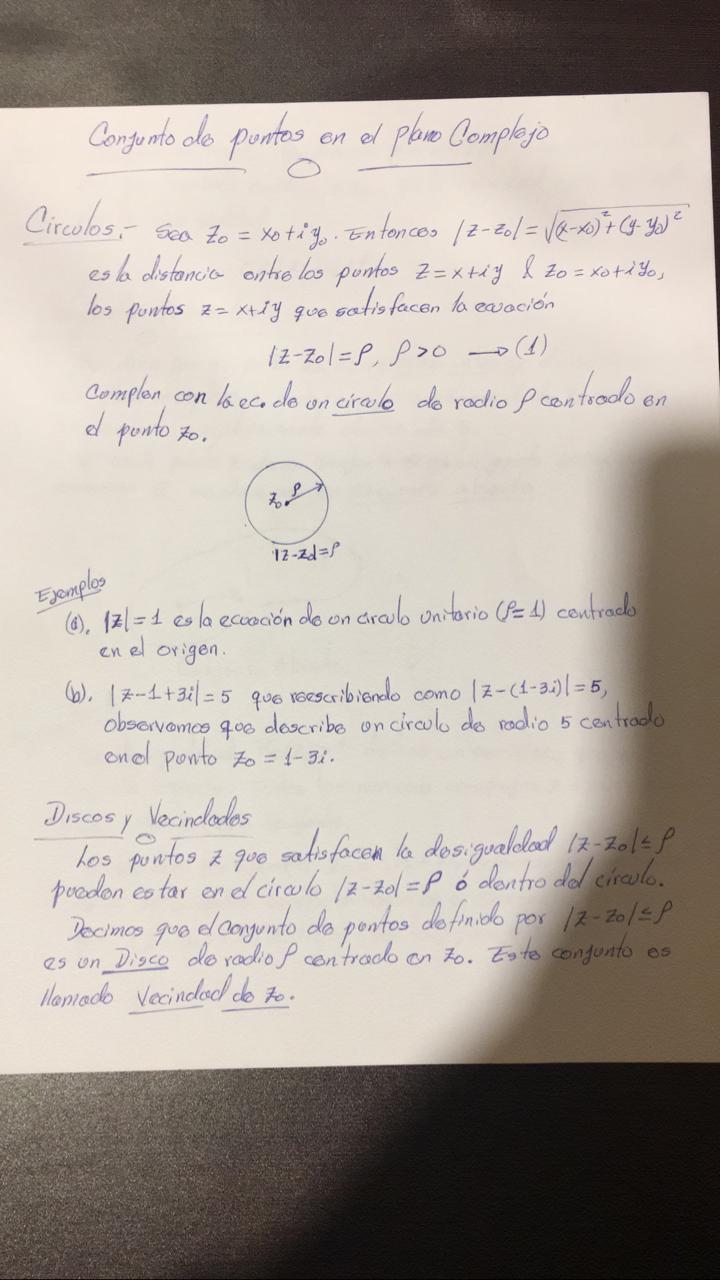 Conjunto de puntos en el plano Complejo
Círculos.- Sea z₀ = x₀+iy₀. Entonces |z-z₀| = √(x-x₀)²+(y-y₀)²
es la distancia entre los puntos z=x+iy & z₀=x₀+iy₀,
los puntos z=x+iy que satisfacen la ecuación
|z-z₀|=ρ, ρ>0 →(1)
Complen con la ec. de un círculo de radio ρ centrado en
el punto z₀.
z₀ ρ
|z-z₀|=ρ
Ejemplos
(a). |z|=1 es la ecuación de un círculo unitario (ρ=1) centrado
en el origen.
(b). |z-1+3i|=5 que reescribiendo como |z-(1-3i)|=5,
observamos que describe un círculo de radio 5 centrado
en el punto z₀ = 1-3i.
Discos y Vecindades
Los puntos z que satisfacen la desigualdad |z-z₀|≤ρ
pueden estar en el círculo |z-z₀|=ρ ó dentro del círculo.
Decimos que el conjunto de puntos definido por |z-z₀|≤ρ
es un Disco de radio ρ centrado en z₀. Este conjunto es
llamado Vecindad de z₀.